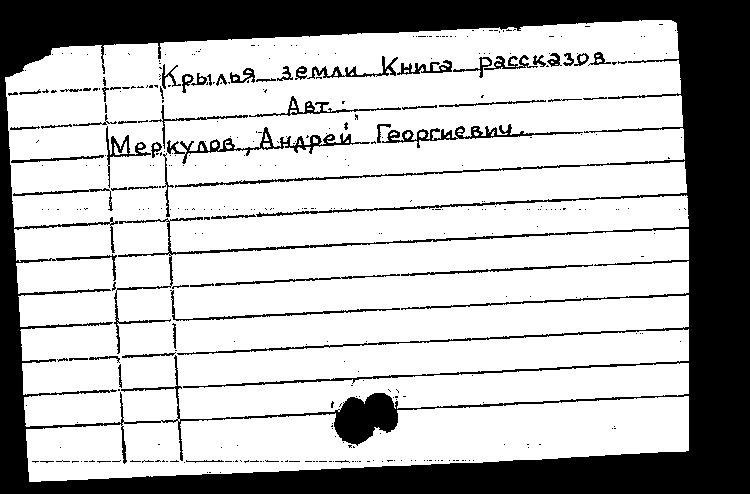 Крылья земли Книга рассказов
Авт.:
Меркулов, Андрей Георгиевич.